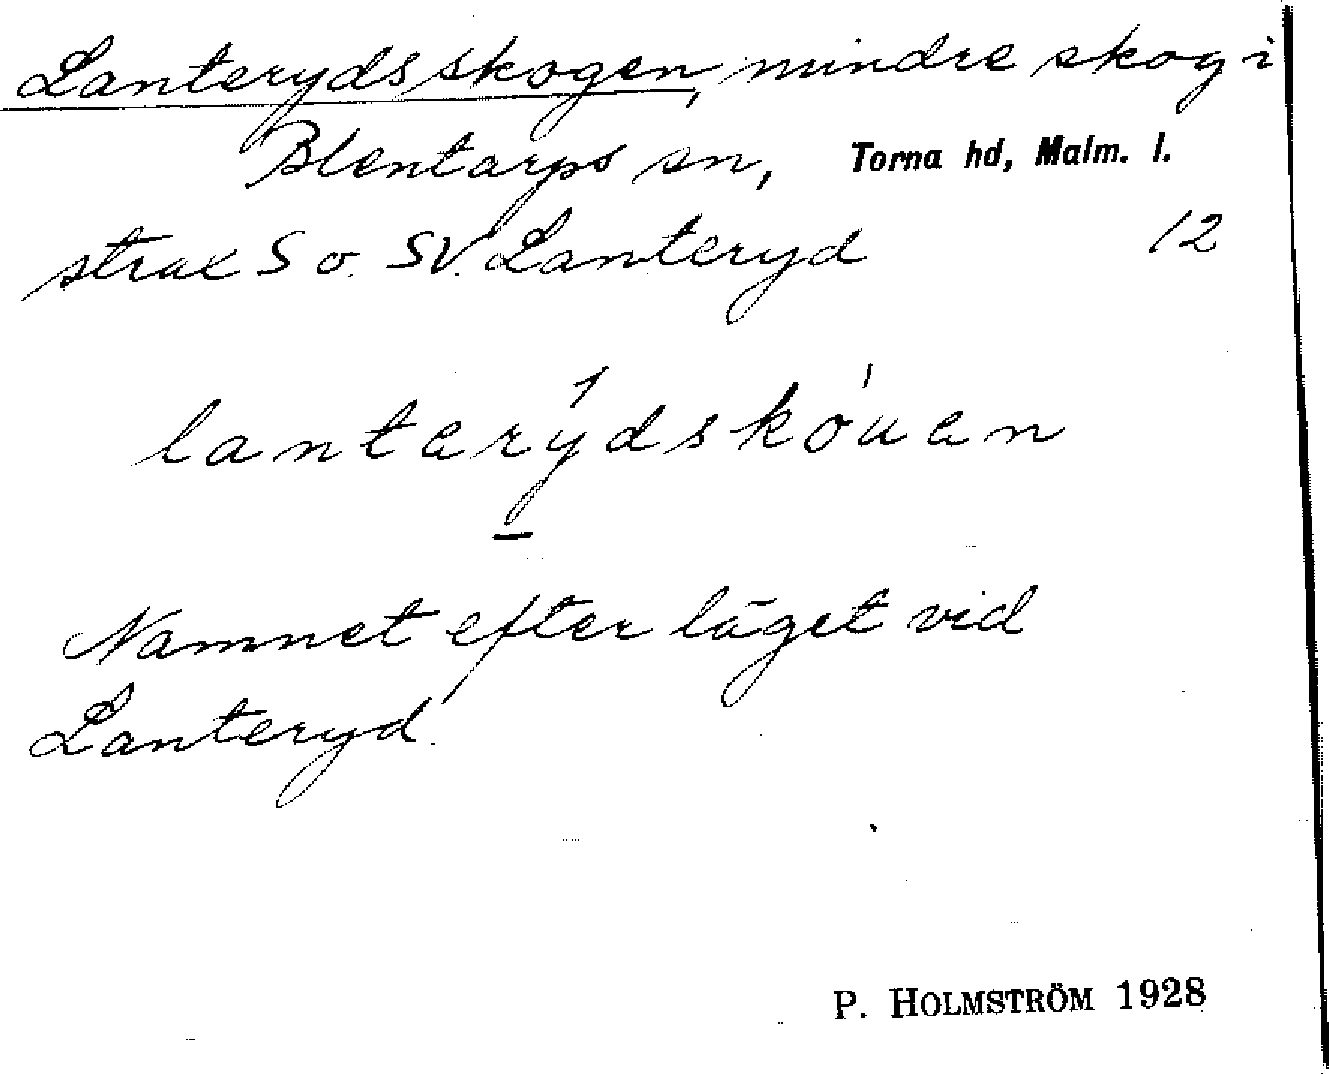 Lanterydsskogen, mindre skog i
Blentarps sn, Torna hd, Malm. l.
strax S o. SV. Lanteryd 12
lanterýdskóuen
Namnet efter läget vid
Lanteryd.
P. HOLMSTRÖM 1928